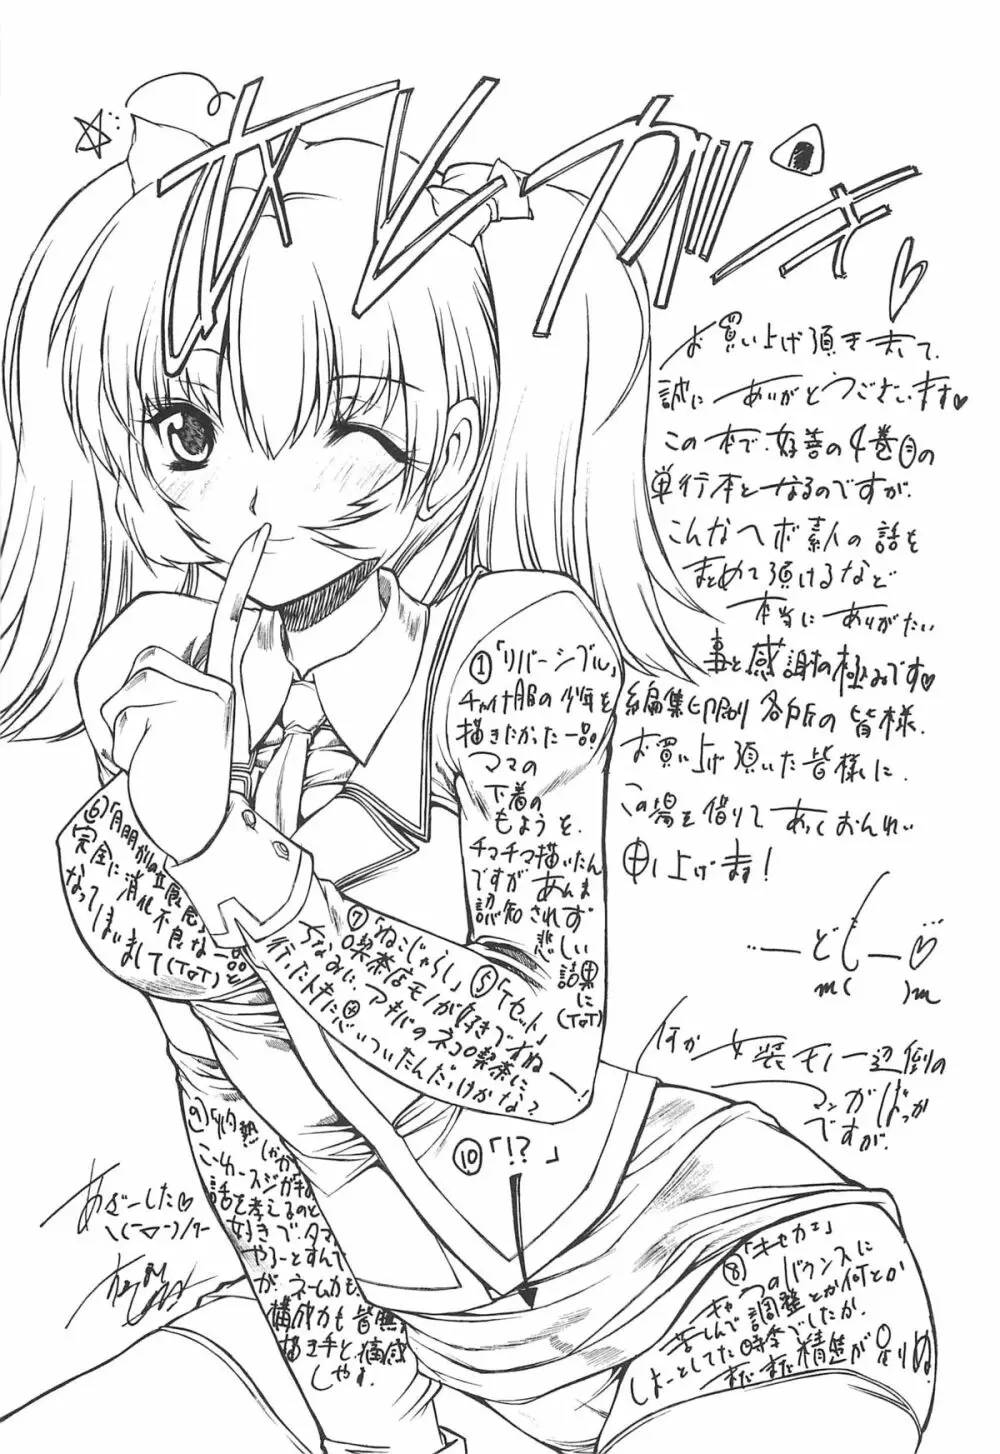 お買い上げ頂きまして、
誠にありがとうございます♥
この本で、好善の4巻目の
単行本となるのですが、
こんなヘボ素人の話を
まとめて頂けるなど
本当にありがたい
事と感謝の極みです♥
編集印刷各所の皆様、
お買い上げ頂いた皆様に、
この場を借りてあつくおんれい
申し上げます!
ーどじー♡
m( )m
何か女装モノ一辺倒の
マンガばっか
ですが、
①「リバーシブル」
チャイナ服の少年を
描きたかった一品。
ママの
下着の
もようを、
チマチマ描いたん
ですが あんま
認知されず
悲しい
結果に
(ToT)
⑤「Tセット」
⑥
完全に消化不良な一品と
なってしまいまして(ToT)
⑦「ねこじゃらし」
喫茶店モノが好きですねー!
ちなみに、アキバのネコ喫茶に
行った時に思いついたんだっけかな?
⑧「キセカエ」
キャラのバウンスに
調整とか何とか
苦しんで
しよーとしてた時季でしたか、
まだまだ精進が足りぬ
話を考えるのと
好きで、タマ
やろーとすんで
が、ネームカも、
構成力も皆無
描き手と、痛感
しやす。
⑩「!?」
あざーした♡
\(ー▽ー)/